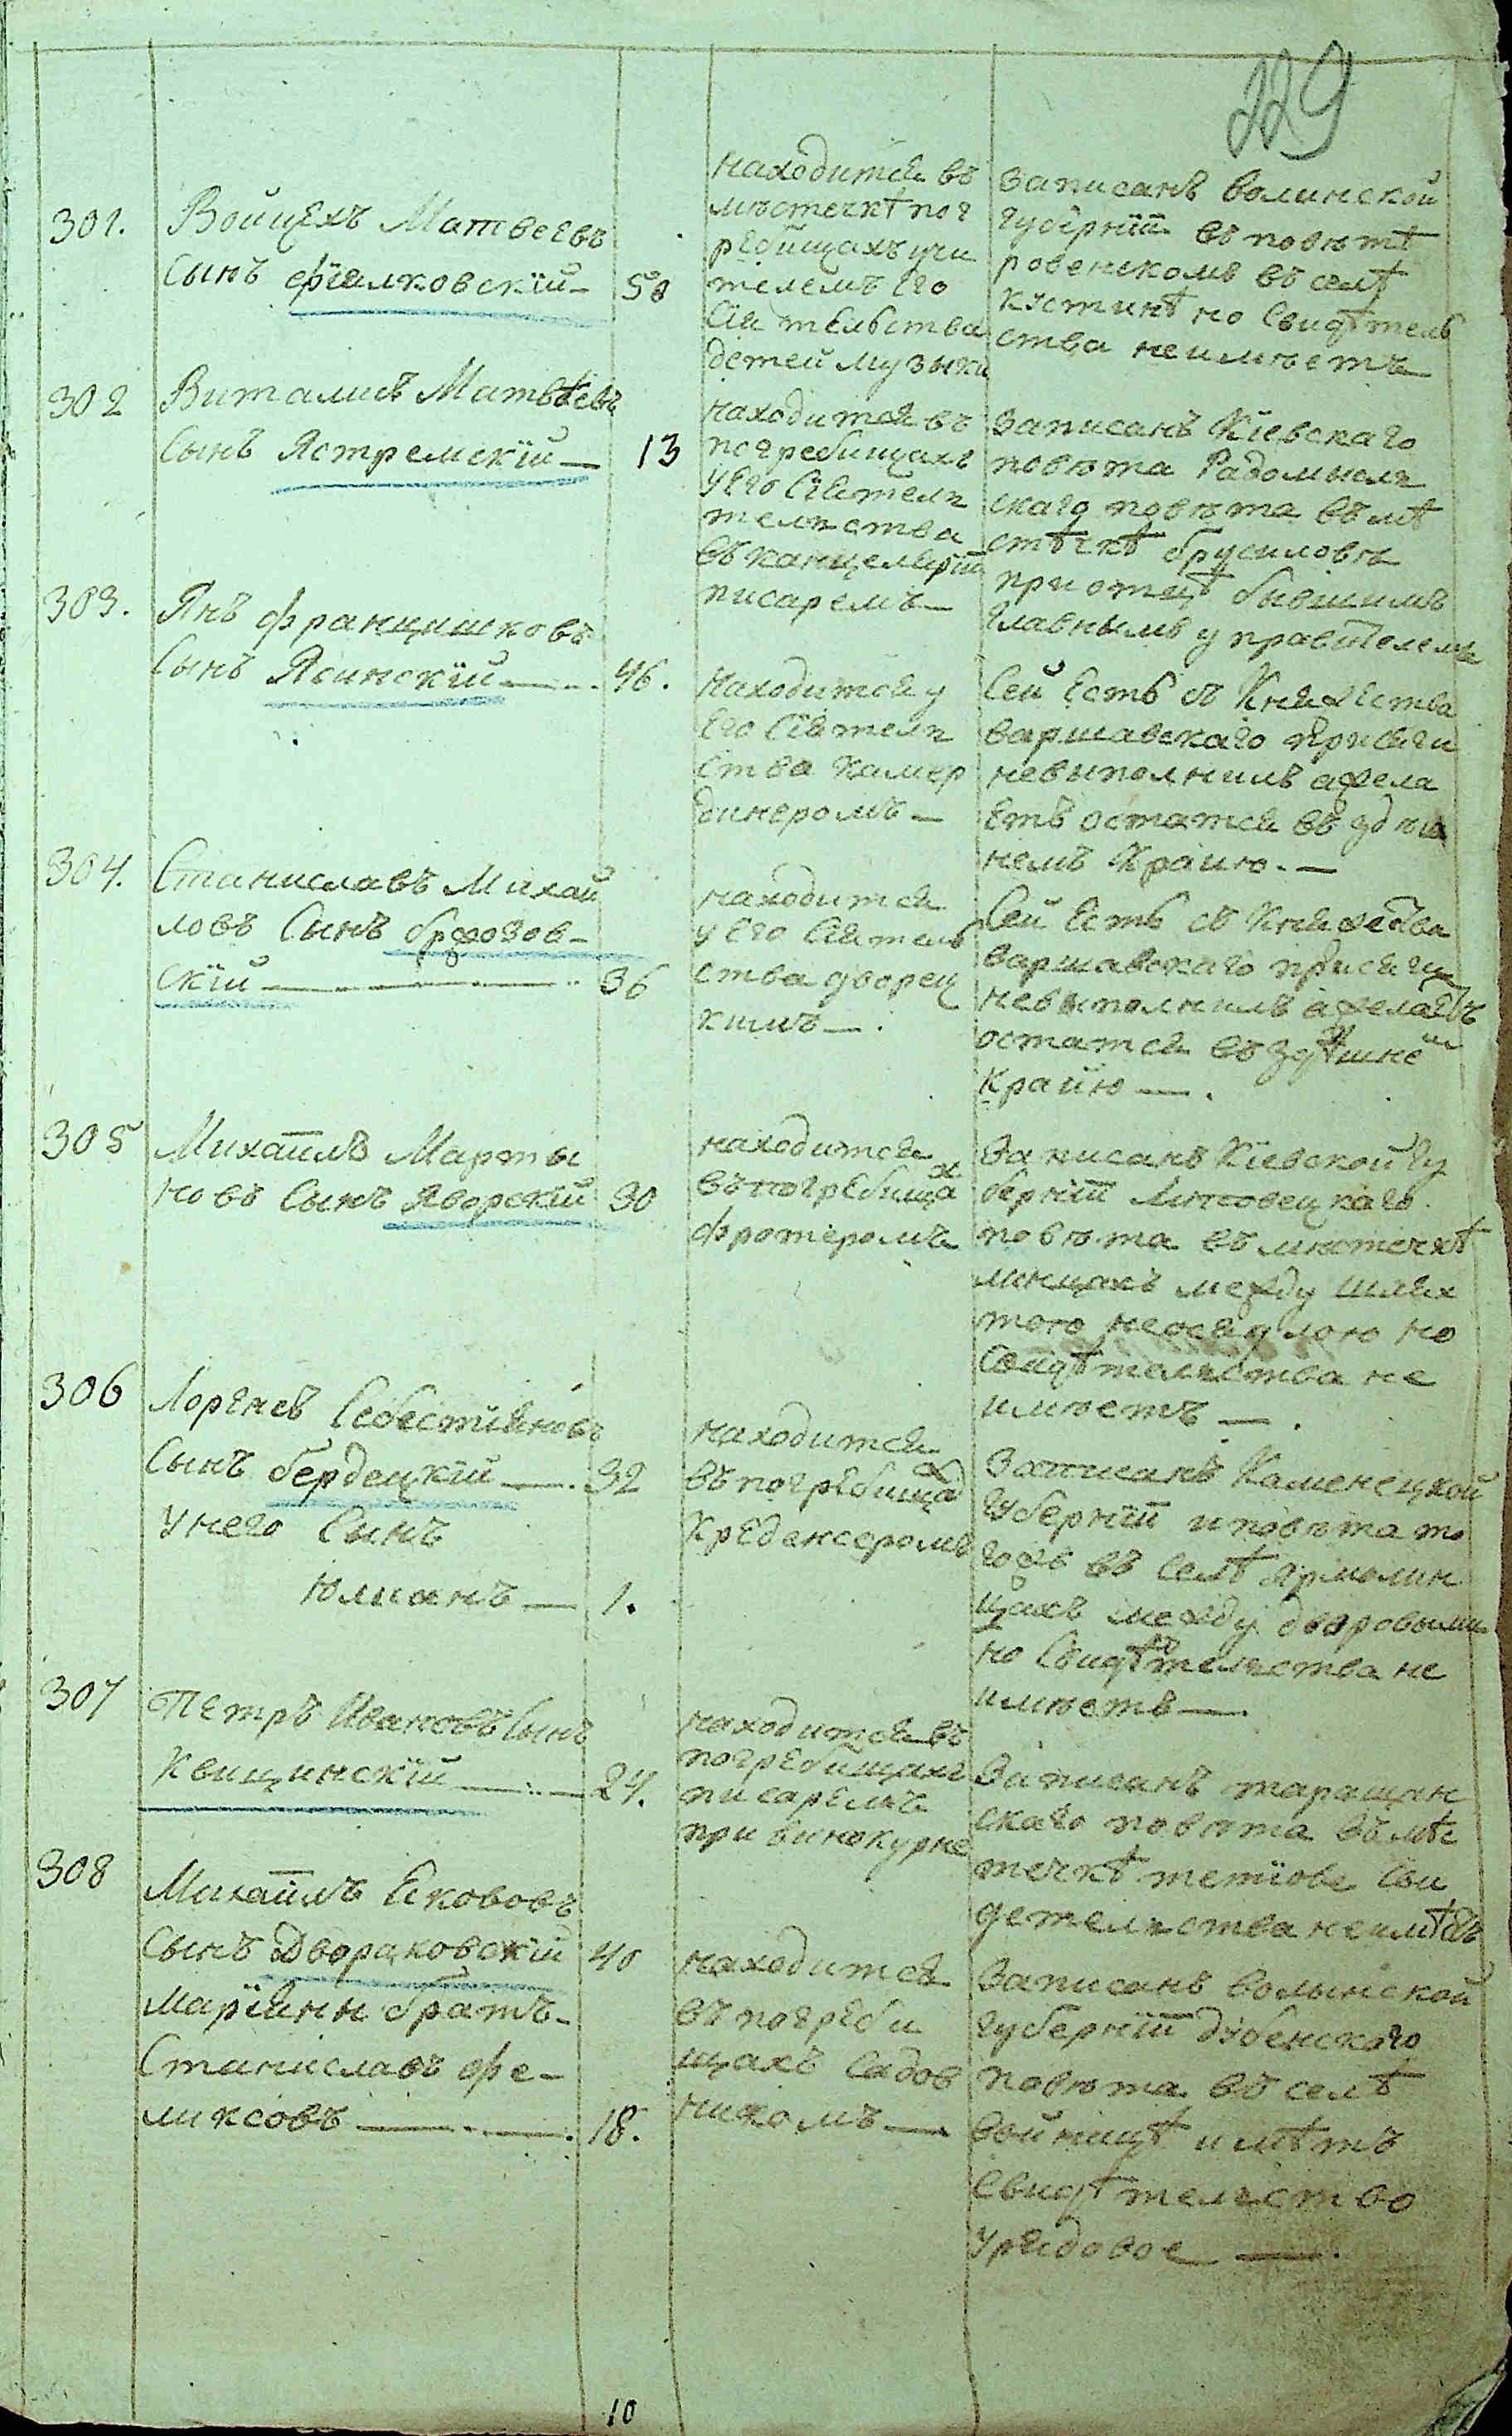 229
301.
Войцехъ Матвеевъ
Сынъ фіялковскій
50
находится въ
мѣстечкѣ пог
ребищахъ учи
телемъ Его
Сія тельства
детей музыки
Записанъ волинской
губерніи въ повѣтѣ
ровенскомъ въ селѣ
кустинѣ но Свидѣтель
ства неимѣетъ
302
Виталисъ Матвѣевъ
Сынъ Ястремскій
13
находится въ
погребищахъ
у Его Сіятель
тельства
въ канцеляріи
писаремъ
Записанъ Кіевскаго
повѣта Радомысль
скаго повѣта въ мѣ
стѣчкѣ брусиловѣ
при отцѣ бывшимъ
главнымъ управителемъ
303.
Янъ францишковъ
Сынъ Ясинскій
46.
Находится у
Его Сіятель
ства камер
динеромъ
Сей Есть съ Княжества
варшавскаго присяги
невыполнилъ а жела
Етъ остатся въ здѣш
немъ Краию.
304.
Станиславъ Михай
ловъ Сынъ бржозов-
скій
36
находится
у Его Сіятель
ства дворец
кимъ
Сей Есть съ Княжества
варшавскаго присяги
невыполнилъ а желаетъ
остатся въ здѣшнемъ
Краию
305
Михаилъ Марты
новъ Сынъ Яворскій
30
находится
въ погребищах
фротеромъ
Записанъ Кіевской гу
берніи Липовецкаго
повѣта въ мѣстечкѣ
линцахъ между шлях
тою неосядлою но
Свидѣтельства не
имѣетъ
306
Лоренсъ Себестіяновъ
Сынъ бердецкій
32
у него Сынъ
Юлианъ
1.
находится
въ погребищах
Креденсеромъ
Записанъ Каменецкой
губерніи и повѣта то
гожъ въ Селѣ Ярмолин
цахъ между дворовыми
но Свидѣтельства не
имѣетъ
307
Петръ Ивановъ Сынъ
Квицинскій
24.
находится въ
погребищахъ
писаремъ
при винокурне
Записанъ таращан
скаго повѣта въ мѣс
течкѣ тетіове Сви
детельства неимѣетъ
308
Михаилъ Якововъ
Сынъ Двораковскій
40
Маріянн братъ-
Станиславъ фе-
ликсовъ
18.
находится
въ погреби
щахъ Садов
никомъ
Записанъ волынской
губерніи дубенского
повѣта въ селѣ
войницѣ имѣтъ
Свидѣтельство
урядовое
10